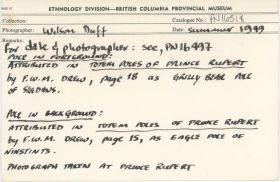 ETHNOLOGY DIVISION—BRITISH COLUMBIA PROVINCIAL MUSEUM
Collection: Catalogue No.: PN 16514
Photographer: Wilson Duff Date: summer 1949
Remarks:
For date & photographer : see, PN 16497
POLE IN FOREGROUND:
ATTRIBUTED IN TOTEM POLES OF PRINCE RUPERT
by F.W.M. DREW, PAGE 18 AS GRIZZLY BEAR POLE
OF SKEDANS.
POLE IN BACKGROUND:
ATTRIBUTED IN TOTEM POLES OF PRINCE RUPERT
by F.W.M. DREW, PAGE 15, AS EAGLE POLE OF
NINSTINTS.
PHOTOGRAPH TAKEN AT PRINCE RUPERT